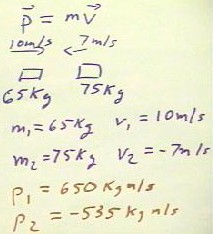 p = mv
10m/s 7m/s
65Kg 75Kg
m₁=65Kg v₁=10m/s
m₂=75Kg v₂=-7m/s
P₁=650Kgm/s
P₂=-535Kgm/s